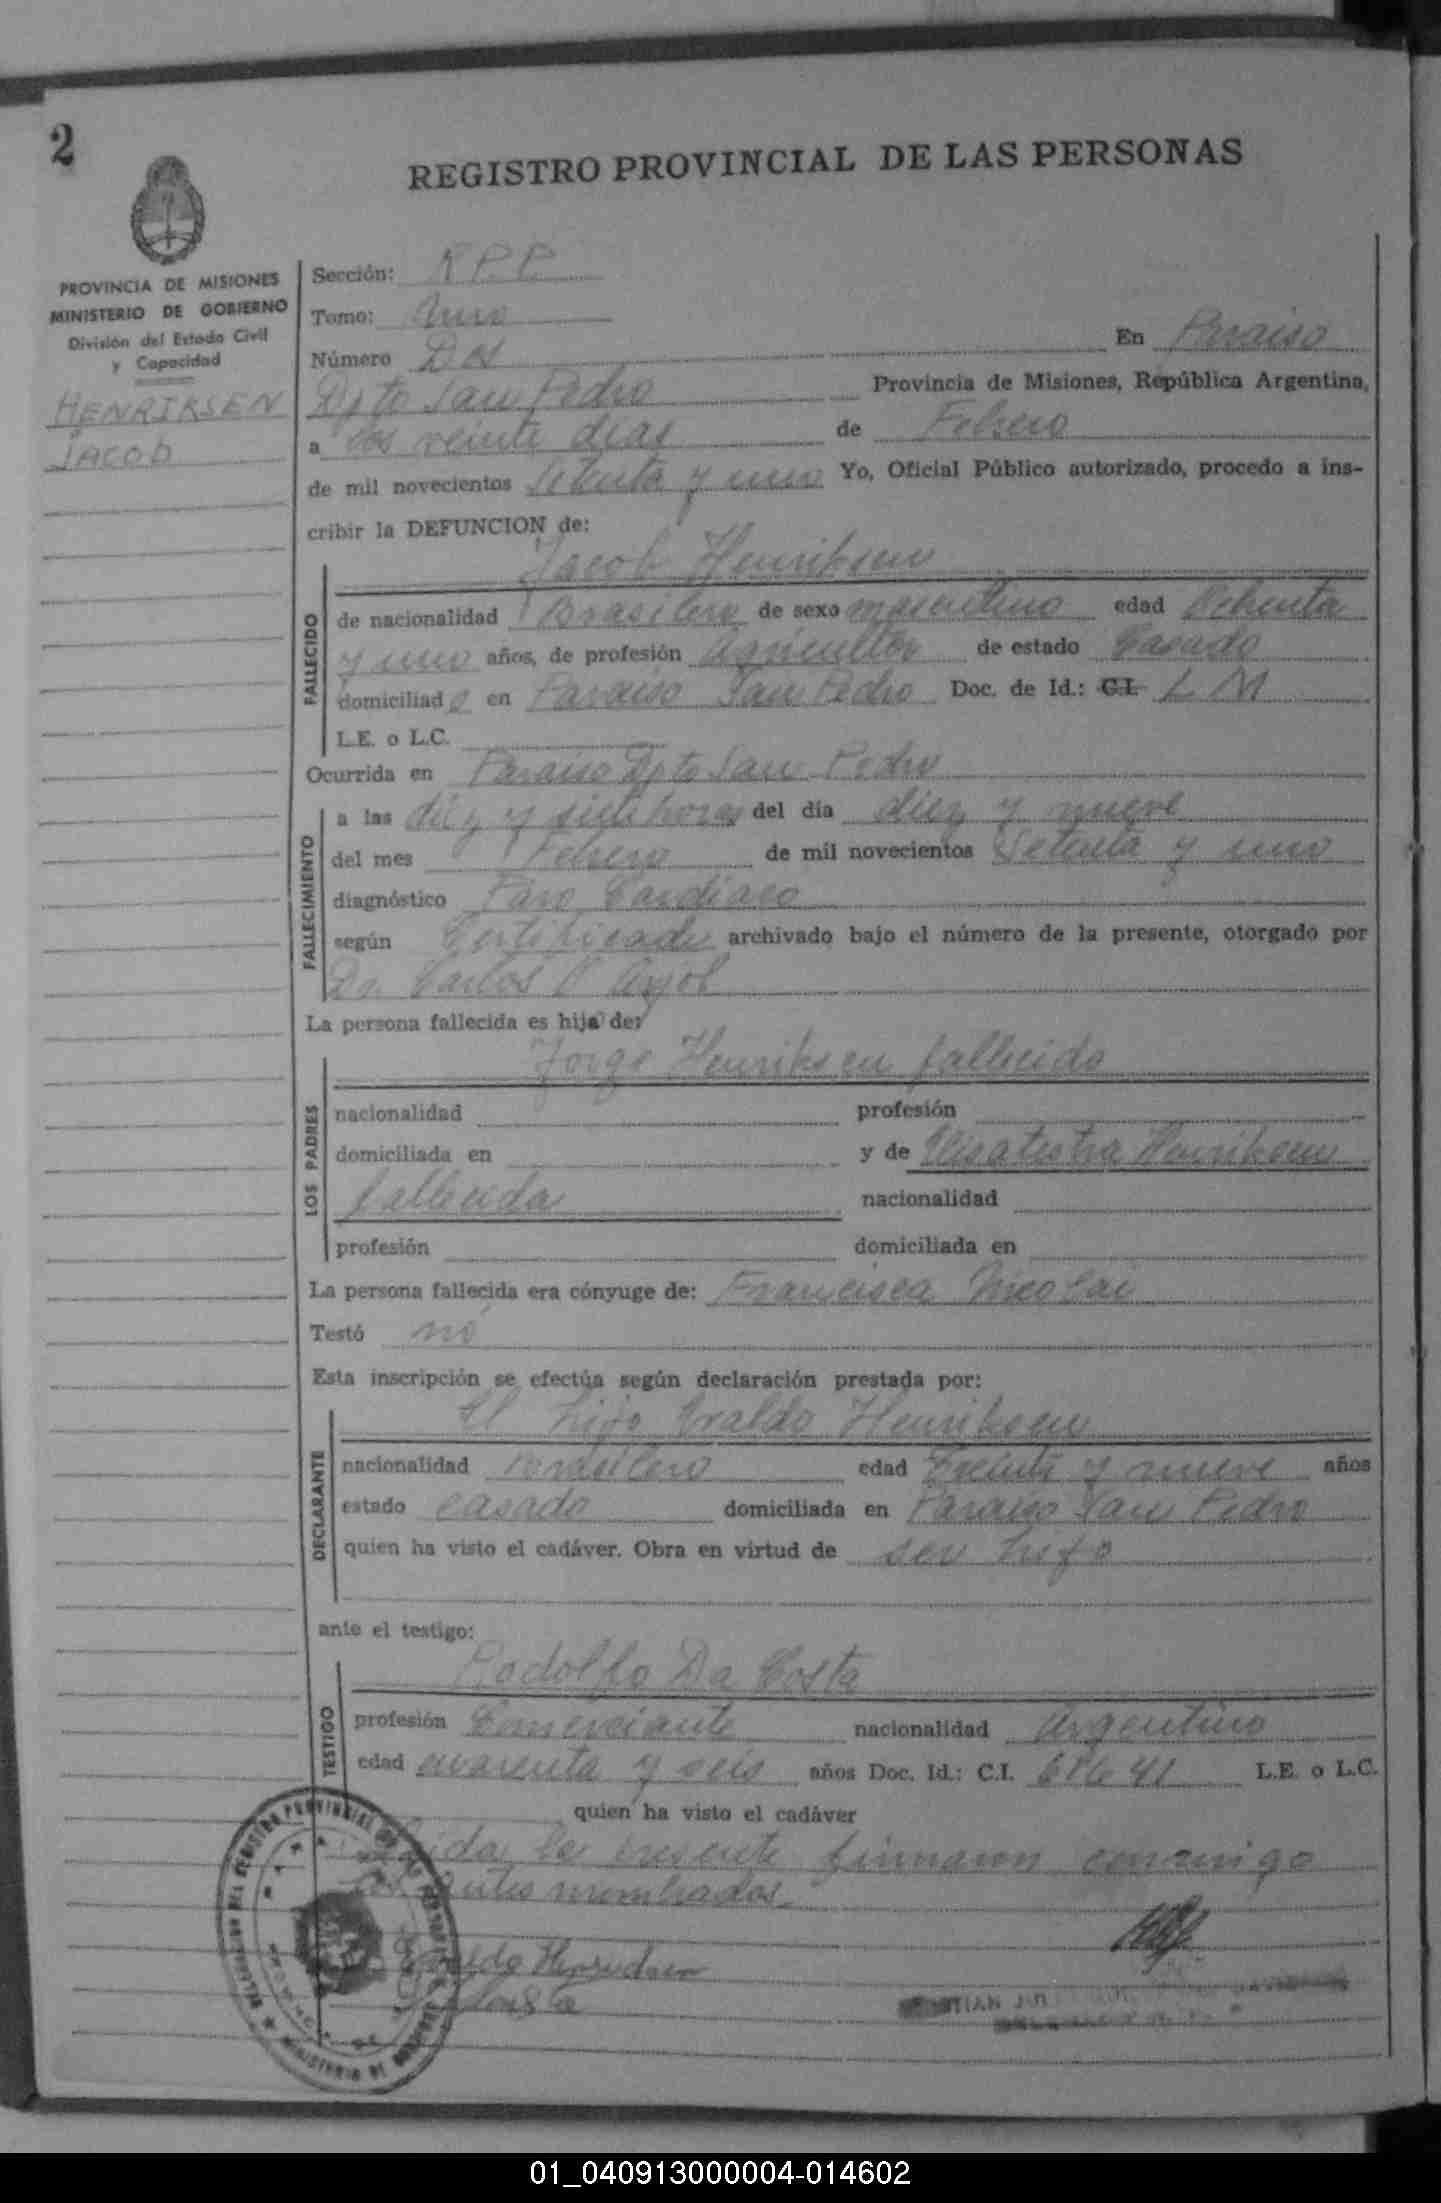 2
REGISTRO PROVINCIAL DE LAS PERSONAS
PROVINCIA DE MISIONES
MINISTERIO DE GOBIERNO
División del Estado Civil
y Capacidad
HENRIKSEN
JACOB
Sección: R P P
Tomo: Uno
Número Dos En Paraiso
Dpto San Pedro Provincia de Misiones, República Argentina,
a los veinte dias de Febrero
de mil novecientos Setenta y uno Yo, Oficial Público autorizado, procedo a ins-
cribir la DEFUNCION de:
Jacob Henriksen
FALLECIDO
de nacionalidad Brasilero de sexo masculino edad Ochenta
y uno años, de profesión Agricultor de estado Casado
domiciliado en Paraiso San Pedro Doc. de Id.: C.I. L M
L.E. o L.C.
Ocurrida en Paraiso Dpto San Pedro
FALLECIMIENTO
a las diez y siete horas del día diez y nueve
del mes Febrero de mil novecientos Setenta y uno
diagnóstico Paro Cardiaco
según Certificado archivado bajo el número de la presente, otorgado por
Dr. Carlos
La persona fallecida es hijo de:
LOS PADRES
Jorge Henriksen fallecido
nacionalidad profesión
domiciliada en y de Henriksen
fallecida nacionalidad
profesión domiciliada en
La persona fallecida era cónyuge de: Francisca Nicolai
Testó no
Esta inscripción se efectúa según declaración prestada por:
DECLARANTE
El hijo Eraldo Henriksen
nacionalidad Brasilero edad Treinta y nueve años
estado casado domiciliada en Paraiso San Pedro
quien ha visto el cadáver. Obra en virtud de ser hijo
ante el testigo:
TESTIGO
Rodolfo Da Costa
profesión Comerciante nacionalidad Argentino
edad cuarenta y seis años Doc. Id.: C.I. L.E. o L.C.
quien ha visto el cadáver
la presente firmaron conmigo
los antes nombrados.
01_040913000004-014602